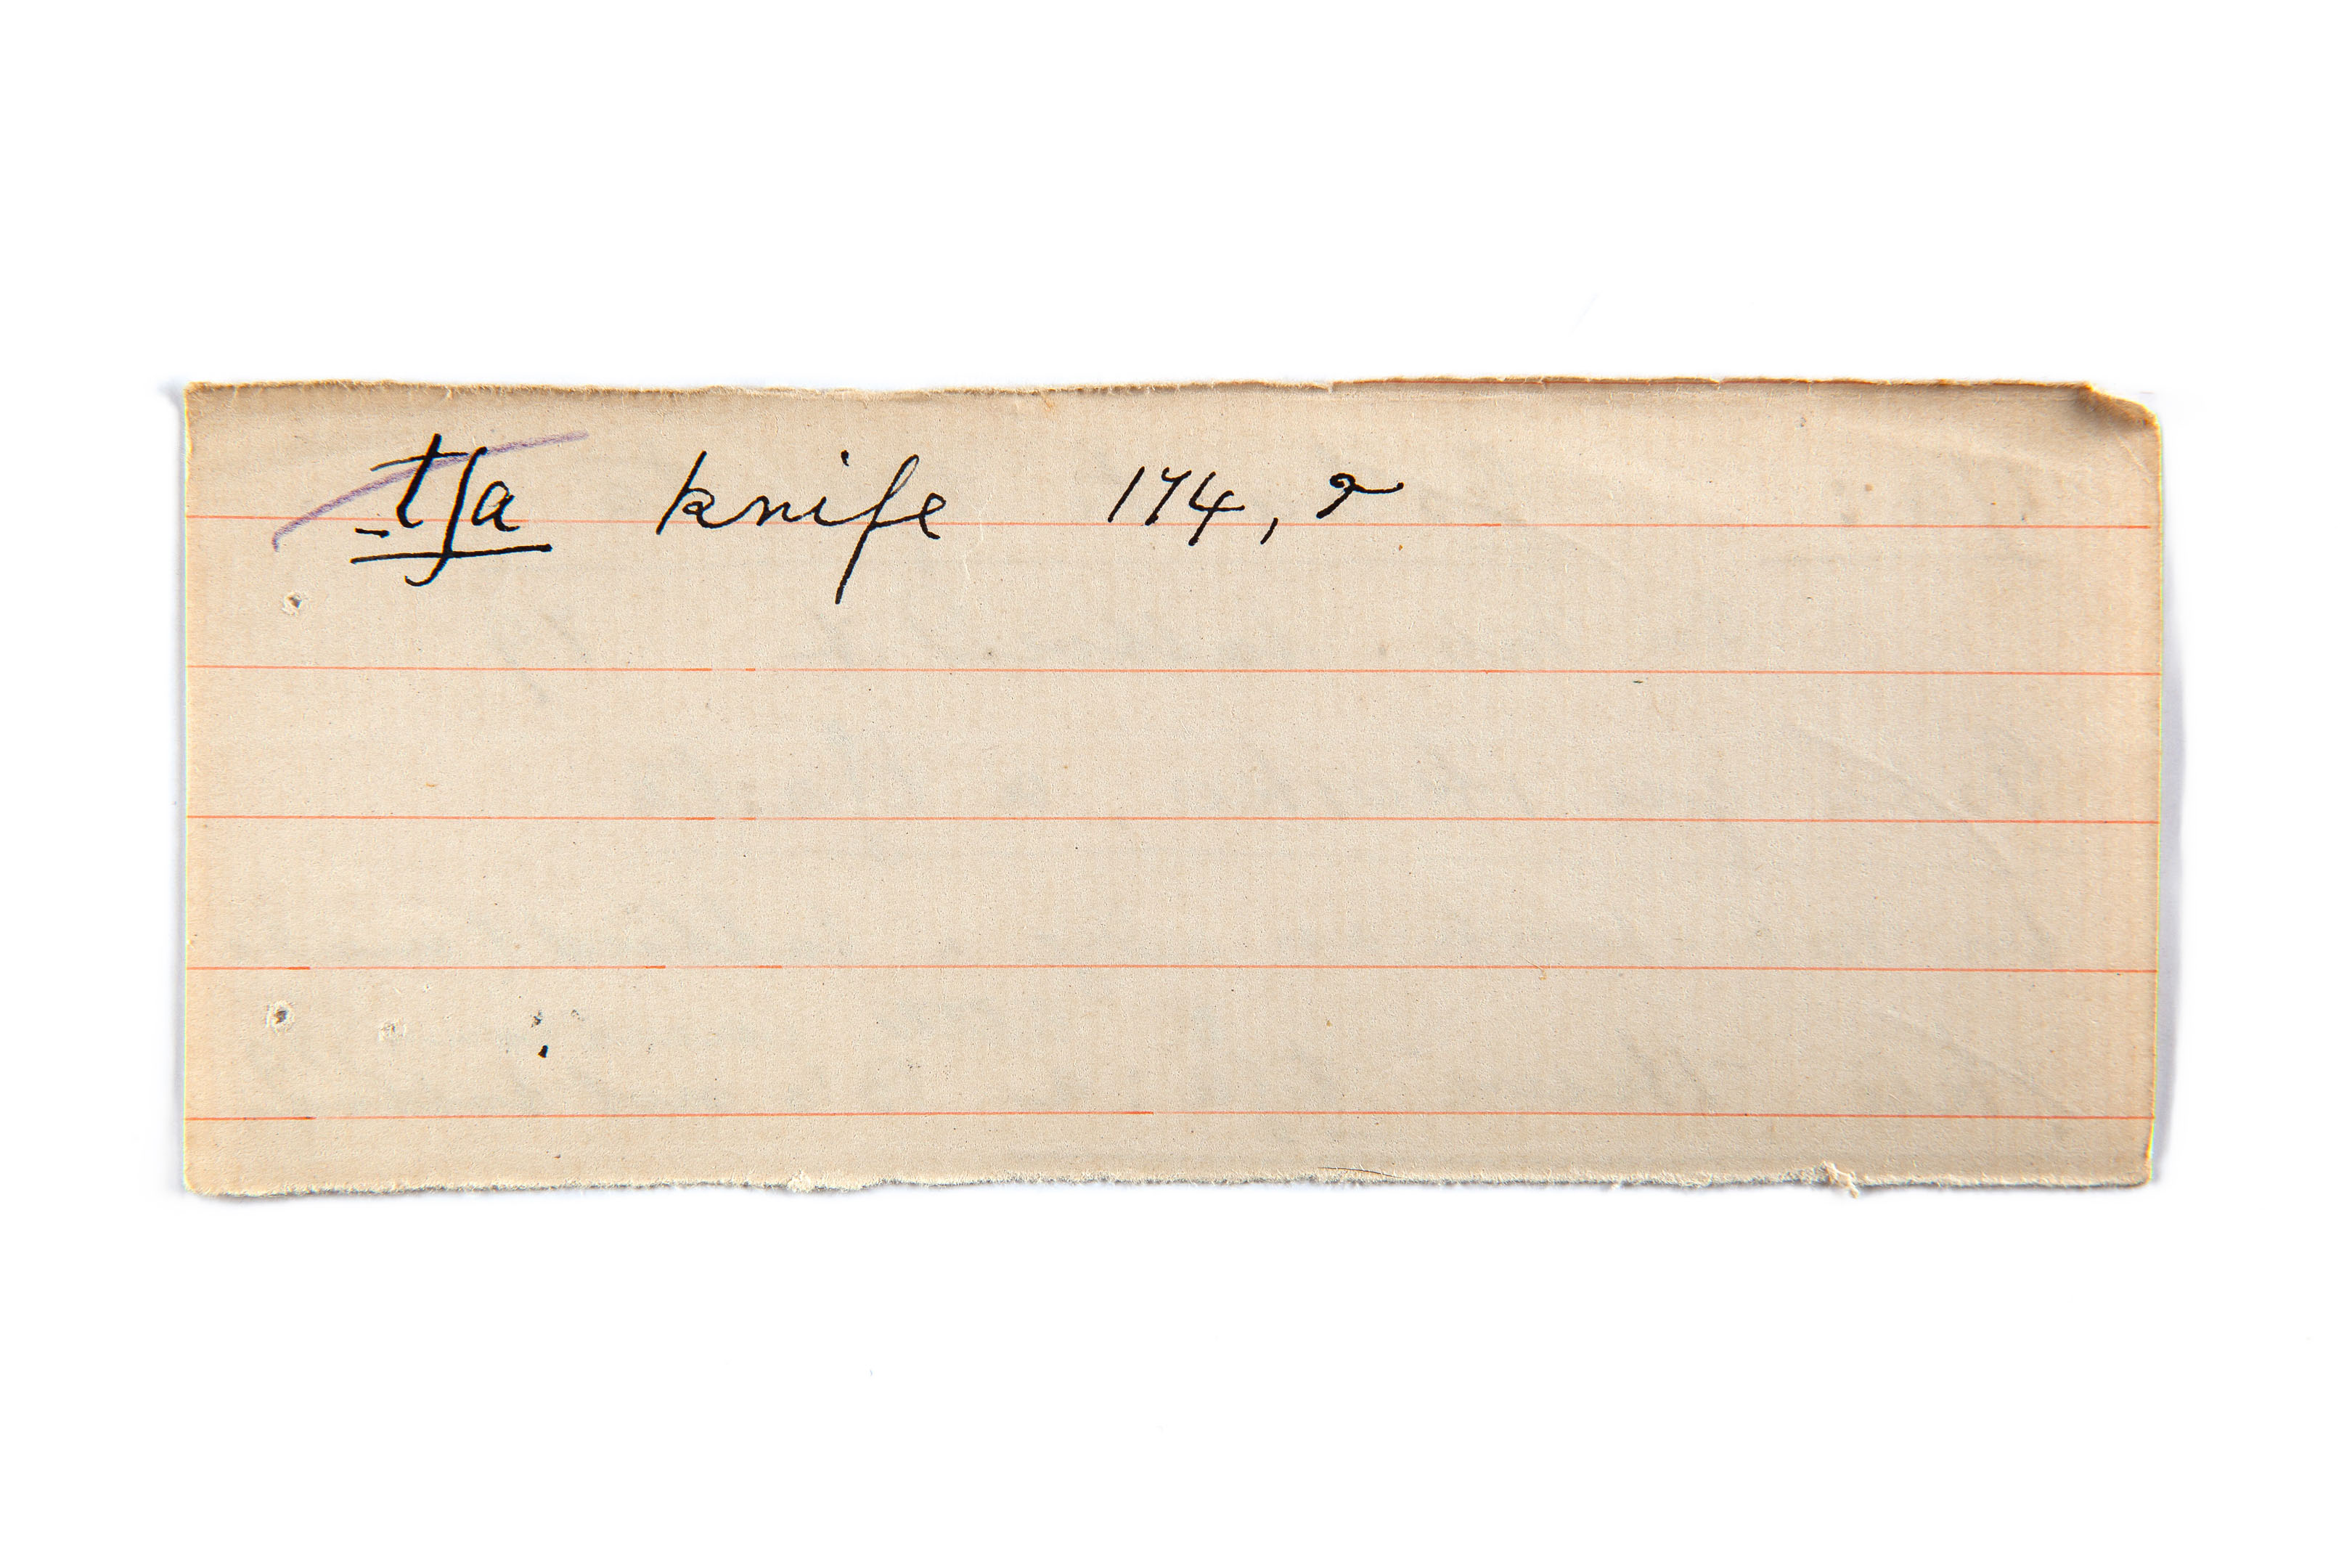 _tʃa knife 174, 2